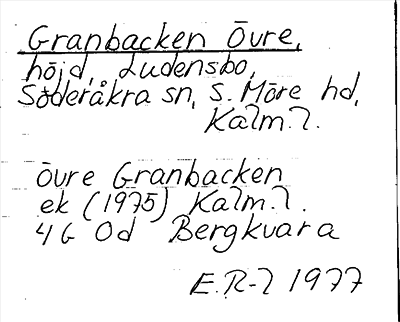 Granbacken Övre,
höjd, Ludensbo,
Söderåkra sn, S. Möre hd,
Kalm. l.
Övre Granbacken
ek (1975) Kalm. l.
4G Od Bergkvara
E.R-l 1977